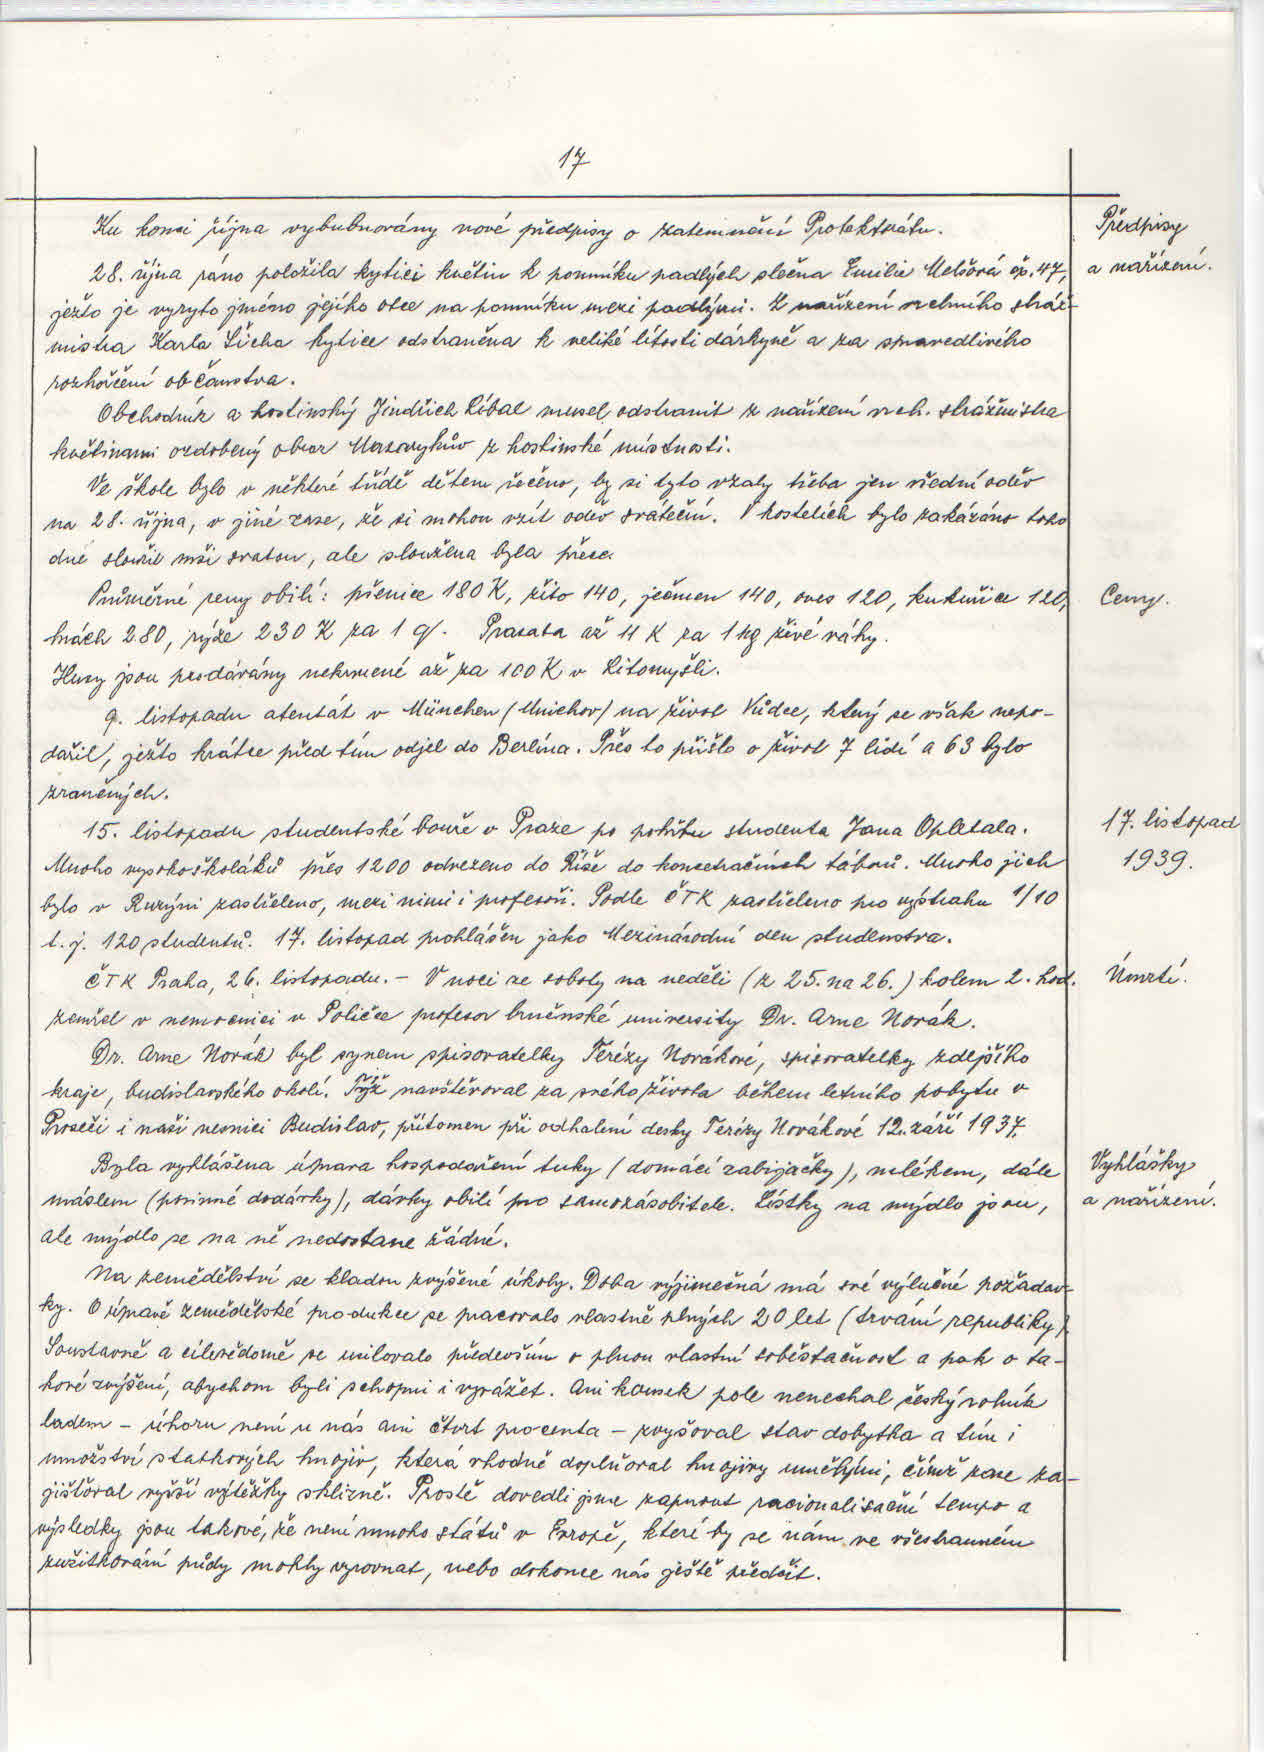 17
Ku konci října vybubnovány nové předpisy o zatemnění Protektorátu.
Předpisy
a nařízení.
28. října ráno položila kytici květin k pomníku padlých slečna Emilie Melšová čp. 47,
ježto je vyryto jméno jejího otce na pomníku mezi padlými. Z nařízení vrchního stráž-
mistra Karla Šícha kytice odstraněna k veliké lítosti dárkyně a za spravedlivého
rozhořčení občanstva.
Obchodník a hostinský Jindřich Líbal musel odstranit z nařízení vrch. strážmistra
květinami ozdobený obraz Masarykův z hostinské místnosti.
Ve škole bylo v některé třídě dětem řečeno, by si tyto vzaly třeba jen všední oděv
na 28. října, v jiné zase, že si mohou vzít oděv sváteční. V kostelích bylo zakázáno toho
dne sloužit mši svatou, ale sloužena byla přece.
Průměrné ceny obilí: pšenice 180 K, žito 140, ječmen 140, oves 120, kukuřice 120,
Ceny.
hrách 280, rýže 230 K za 1 q. Prasata až 11 K za 1 kg živé váhy.
Husy jsou prodávány nekrmené až za 100 K v Litomyšli.
9. listopadu atentát v München (Mnichov) na život Vůdce, který se však nepo-
dařil, ježto krátce před tím odjel do Berlína. Přes to přišlo o život 7 lidí a 63 bylo
zraněných.
15. listopadu studentské bouře v Praze po pohřbu studenta Jana Opletala.
17. listopad
1939.
Mnoho vysokoškoláků přes 1200 odvezeno do Říše do koncetračních táborů. Mnoho jich
bylo v Ruzýni zastřeleno, mezi nimi i profesoři. Podle ČTK zastřeleno pro výstrahu 1/10
t. j. 120 studentů. 17. listopad prohlášen jako Mezinárodní den studenstva.
ČTK Praha, 26. listopadu. – V noci ze soboty na neděli (z 25. na 26.) kolem 2. hod.
Úmrtí.
zemřel v nemocnici v Poličce profesor brněnské university Dr. Arne Novák.
Dr. Arne Novák byl synem spisovatelky Terézy Novákové, spisovatelky zdejšího
kraje, budislavského okolí. Týž navštěvoval za svého života během letního pobytu v
Proseči i naši vesnici Budislav, přítomen při odhalení desky Terézy Novákové 12. září 1937.
Byla vyhlášena úprava hospodaření tuky (domácí zabijačky), mlékem, dále
Vyhlášky
a nařízení.
máslem (povinné dodávky), dávky obilí pro samozásobitele. Lístky na mýdlo jsou,
ale mýdlo se na ně nedostane žádné.
Na zemědělství se kladou zvýšené úkoly. Doba výjimečná má své výlučné požadav-
ky. O úpravě zemědělské produkce se pracovalo vlastně plných 20 let (trvání republiky).
Soustavně a cílevědomě se usilovalo především o plnou vlastní soběstačnost a pak o ta-
kové zvýšení, abychom byli schopni i vyvážet. Ani kousek pole nenechal český rolník
ladem – úhoru není u nás ani čtvrt procenta – zvyšoval stav dobytka a tím i
množství statkových hnojiv, která vhodně doplňoval hnojivy umělými, čímž zase za-
jišťoval vyšší výtěžky sklizně. Prostě dovedli jsme zapnout racionalisační tempo a
výsledky jsou takové, že není mnoho států v Evropě, které by se nám ve všestranném
zužitkování půdy mohly vyrovnat, nebo dokonce nás ještě předčit.